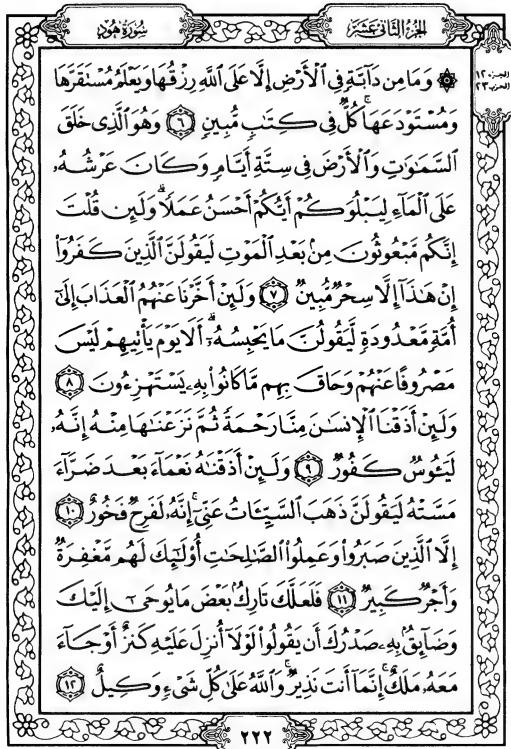 سُورَةُ هُودٍ
الجُزْءُ الثَّانِي عَشَرَ
الجزء ١٢
الحزب ٢٣
۞ وَمَا مِن دَآبَّةٖ فِي ٱلۡأَرۡضِ إِلَّا عَلَى ٱللَّهِ رِزۡقُهَا وَيَعۡلَمُ مُسۡتَقَرَّهَا
وَمُسۡتَوۡدَعَهَاۚ كُلّٞ فِي كِتَٰبٖ مُّبِينٖ ٦ وَهُوَ ٱلَّذِي خَلَقَ
ٱلسَّمَٰوَٰتِ وَٱلۡأَرۡضَ فِي سِتَّةِ أَيَّامٖ وَكَانَ عَرۡشُهُۥ
عَلَى ٱلۡمَآءِ لِيَبۡلُوَكُمۡ أَيُّكُمۡ أَحۡسَنُ عَمَلٗاۗ وَلَئِن قُلۡتَ
إِنَّكُم مَّبۡعُوثُونَ مِنۢ بَعۡدِ ٱلۡمَوۡتِ لَيَقُولَنَّ ٱلَّذِينَ كَفَرُوٓاْ
إِنۡ هَٰذَآ إِلَّا سِحۡرٞ مُّبِينٞ ٧ وَلَئِنۡ أَخَّرۡنَا عَنۡهُمُ ٱلۡعَذَابَ إِلَىٰٓ
أُمَّةٖ مَّعۡدُودَةٖ لَّيَقُولُنَّ مَا يَحۡبِسُهُۥٓۗ أَلَا يَوۡمَ يَأۡتِيهِمۡ لَيۡسَ
مَصۡرُوفًا عَنۡهُمۡ وَحَاقَ بِهِم مَّا كَانُواْ بِهِۦ يَسۡتَهۡزِءُونَ ٨
وَلَئِنۡ أَذَقۡنَا ٱلۡإِنسَٰنَ مِنَّا رَحۡمَةٗ ثُمَّ نَزَعۡنَٰهَا مِنۡهُ إِنَّهُۥ
لَيَـُٔوسٞ كَفُورٞ ٩ وَلَئِنۡ أَذَقۡنَٰهُ نَعۡمَآءَ بَعۡدَ ضَرَّآءَ
مَسَّتۡهُ لَيَقُولَنَّ ذَهَبَ ٱلسَّيِّـَٔاتُ عَنِّيٓۚ إِنَّهُۥ لَفَرِحٞ فَخُورٌ ١٠
إِلَّا ٱلَّذِينَ صَبَرُواْ وَعَمِلُواْ ٱلصَّٰلِحَٰتِ أُوْلَٰٓئِكَ لَهُم مَّغۡفِرَةٞ
وَأَجۡرٞ كَبِيرٞ ١١ فَلَعَلَّكَ تَارِكُۢ بَعۡضَ مَا يُوحَىٰٓ إِلَيۡكَ
وَضَآئِقُۢ بِهِۦ صَدۡرُكَ أَن يَقُولُواْ لَوۡلَآ أُنزِلَ عَلَيۡهِ كَنزٌ أَوۡ جَآءَ
مَعَهُۥ مَلَكٌۚ إِنَّمَآ أَنتَ نَذِيرٞۚ وَٱللَّهُ عَلَىٰ كُلِّ شَيۡءٖ وَكِيلٌ ١٢
٢٢٢